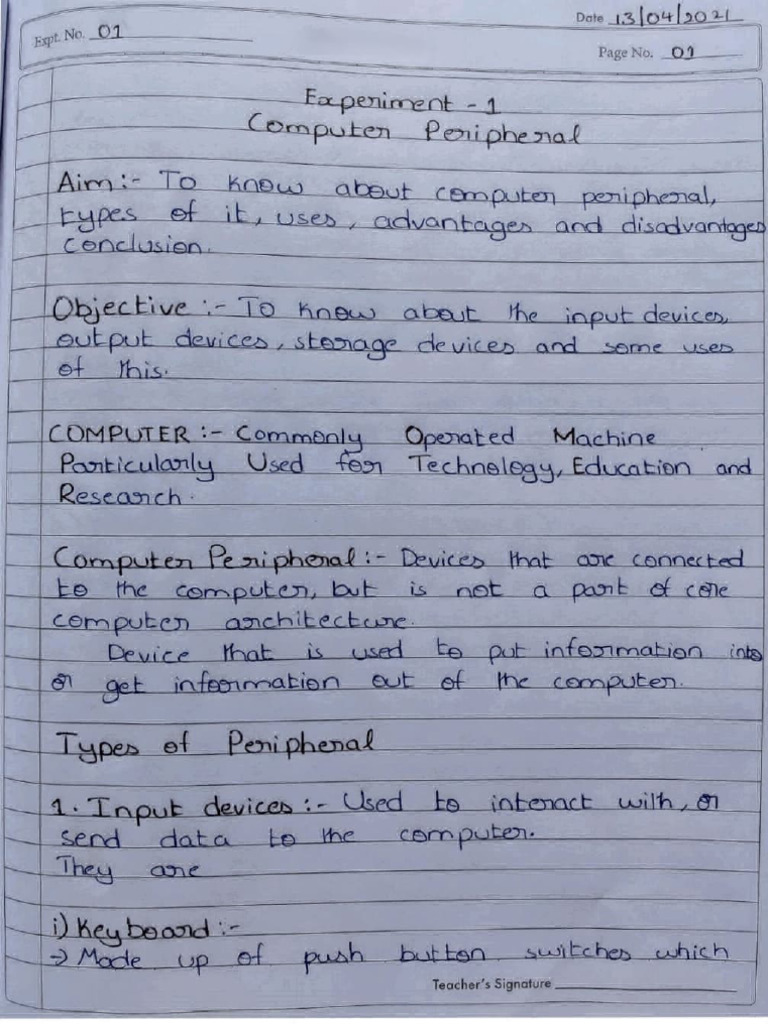 Date 13/04/2021
Expt. No. 01
Page No. 01
Experiment - 1
Computer Peripheral
Aim:- To know about computer peripheral,
types of it, uses, advantages and disadvantages
conclusion.
Objective :- To know about the input devices,
output devices, storage devices and some uses
of this.
COMPUTER :- Commonly Operated Machine
Particularly Used for Technology, Education and
Research.
Computer Peripheral :- Devices that are connected
to the computer, but is not a part of core
computer architecture.
Device that is used to put information into
or get information out of the computer.
Types of Peripheral
1. Input devices :- Used to interact with, or
send data to the computer.
They are
i) Keyboard :-
→ Made up of push button switches which
Teacher's Signature